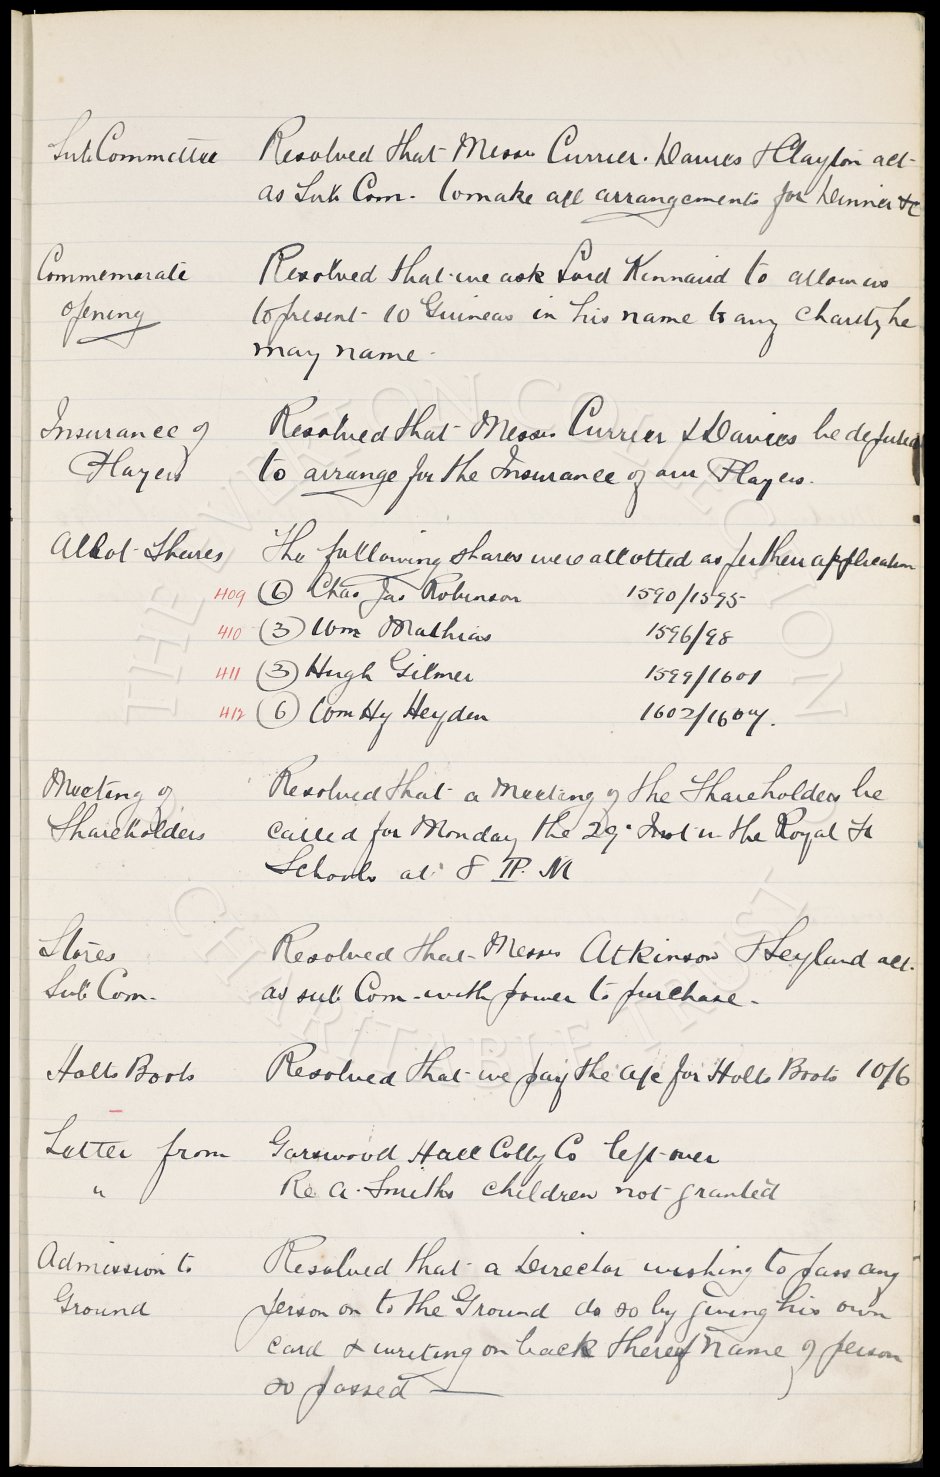 Sub Committee Resolved that Messrs Currier. Davies & Clayton act
as Sub Com. to make all arrangements for Dinner &c
Commemorate Resolved that we ask Lord Kinnaird to allow us
opening to present 10 Guineas in his name to any charity he
may name.
Insurance of Resolved that Messrs Currier & Davies be deputed
Players to arrange for the Insurance of our Players.
Allot Shares The following shares were allotted as per their application
409 (6) Chas Jas Robinson 1590/1595
410 (3) Wm Mathias 1596/98
411 (3) Hugh Gilmer 1599/1601
412 (6) Wm Hy Heyden 1602/1607.
Meeting of Resolved that a Meeting of the Shareholders be
Shareholders called for Monday the 29. Inst in the Royal St
Schools at 8 P. M
Stores Resolved that Messrs Atkinson & Leyland act.
Sub Com. as sub Com. with power to purchase.
Holts Boots Resolved that we pay the a/c for Holts Boots 10/6
Letter from Garswood Hall Colly Co left over
" Re A. Smiths children not granted
Admission to Resolved that a Director wishing to pass any
Ground person on to the Ground do so by giving his own
card & writing on back thereof Name of person
so passed
THE EVERTON COLLECTION
CHARITABLE TRUST